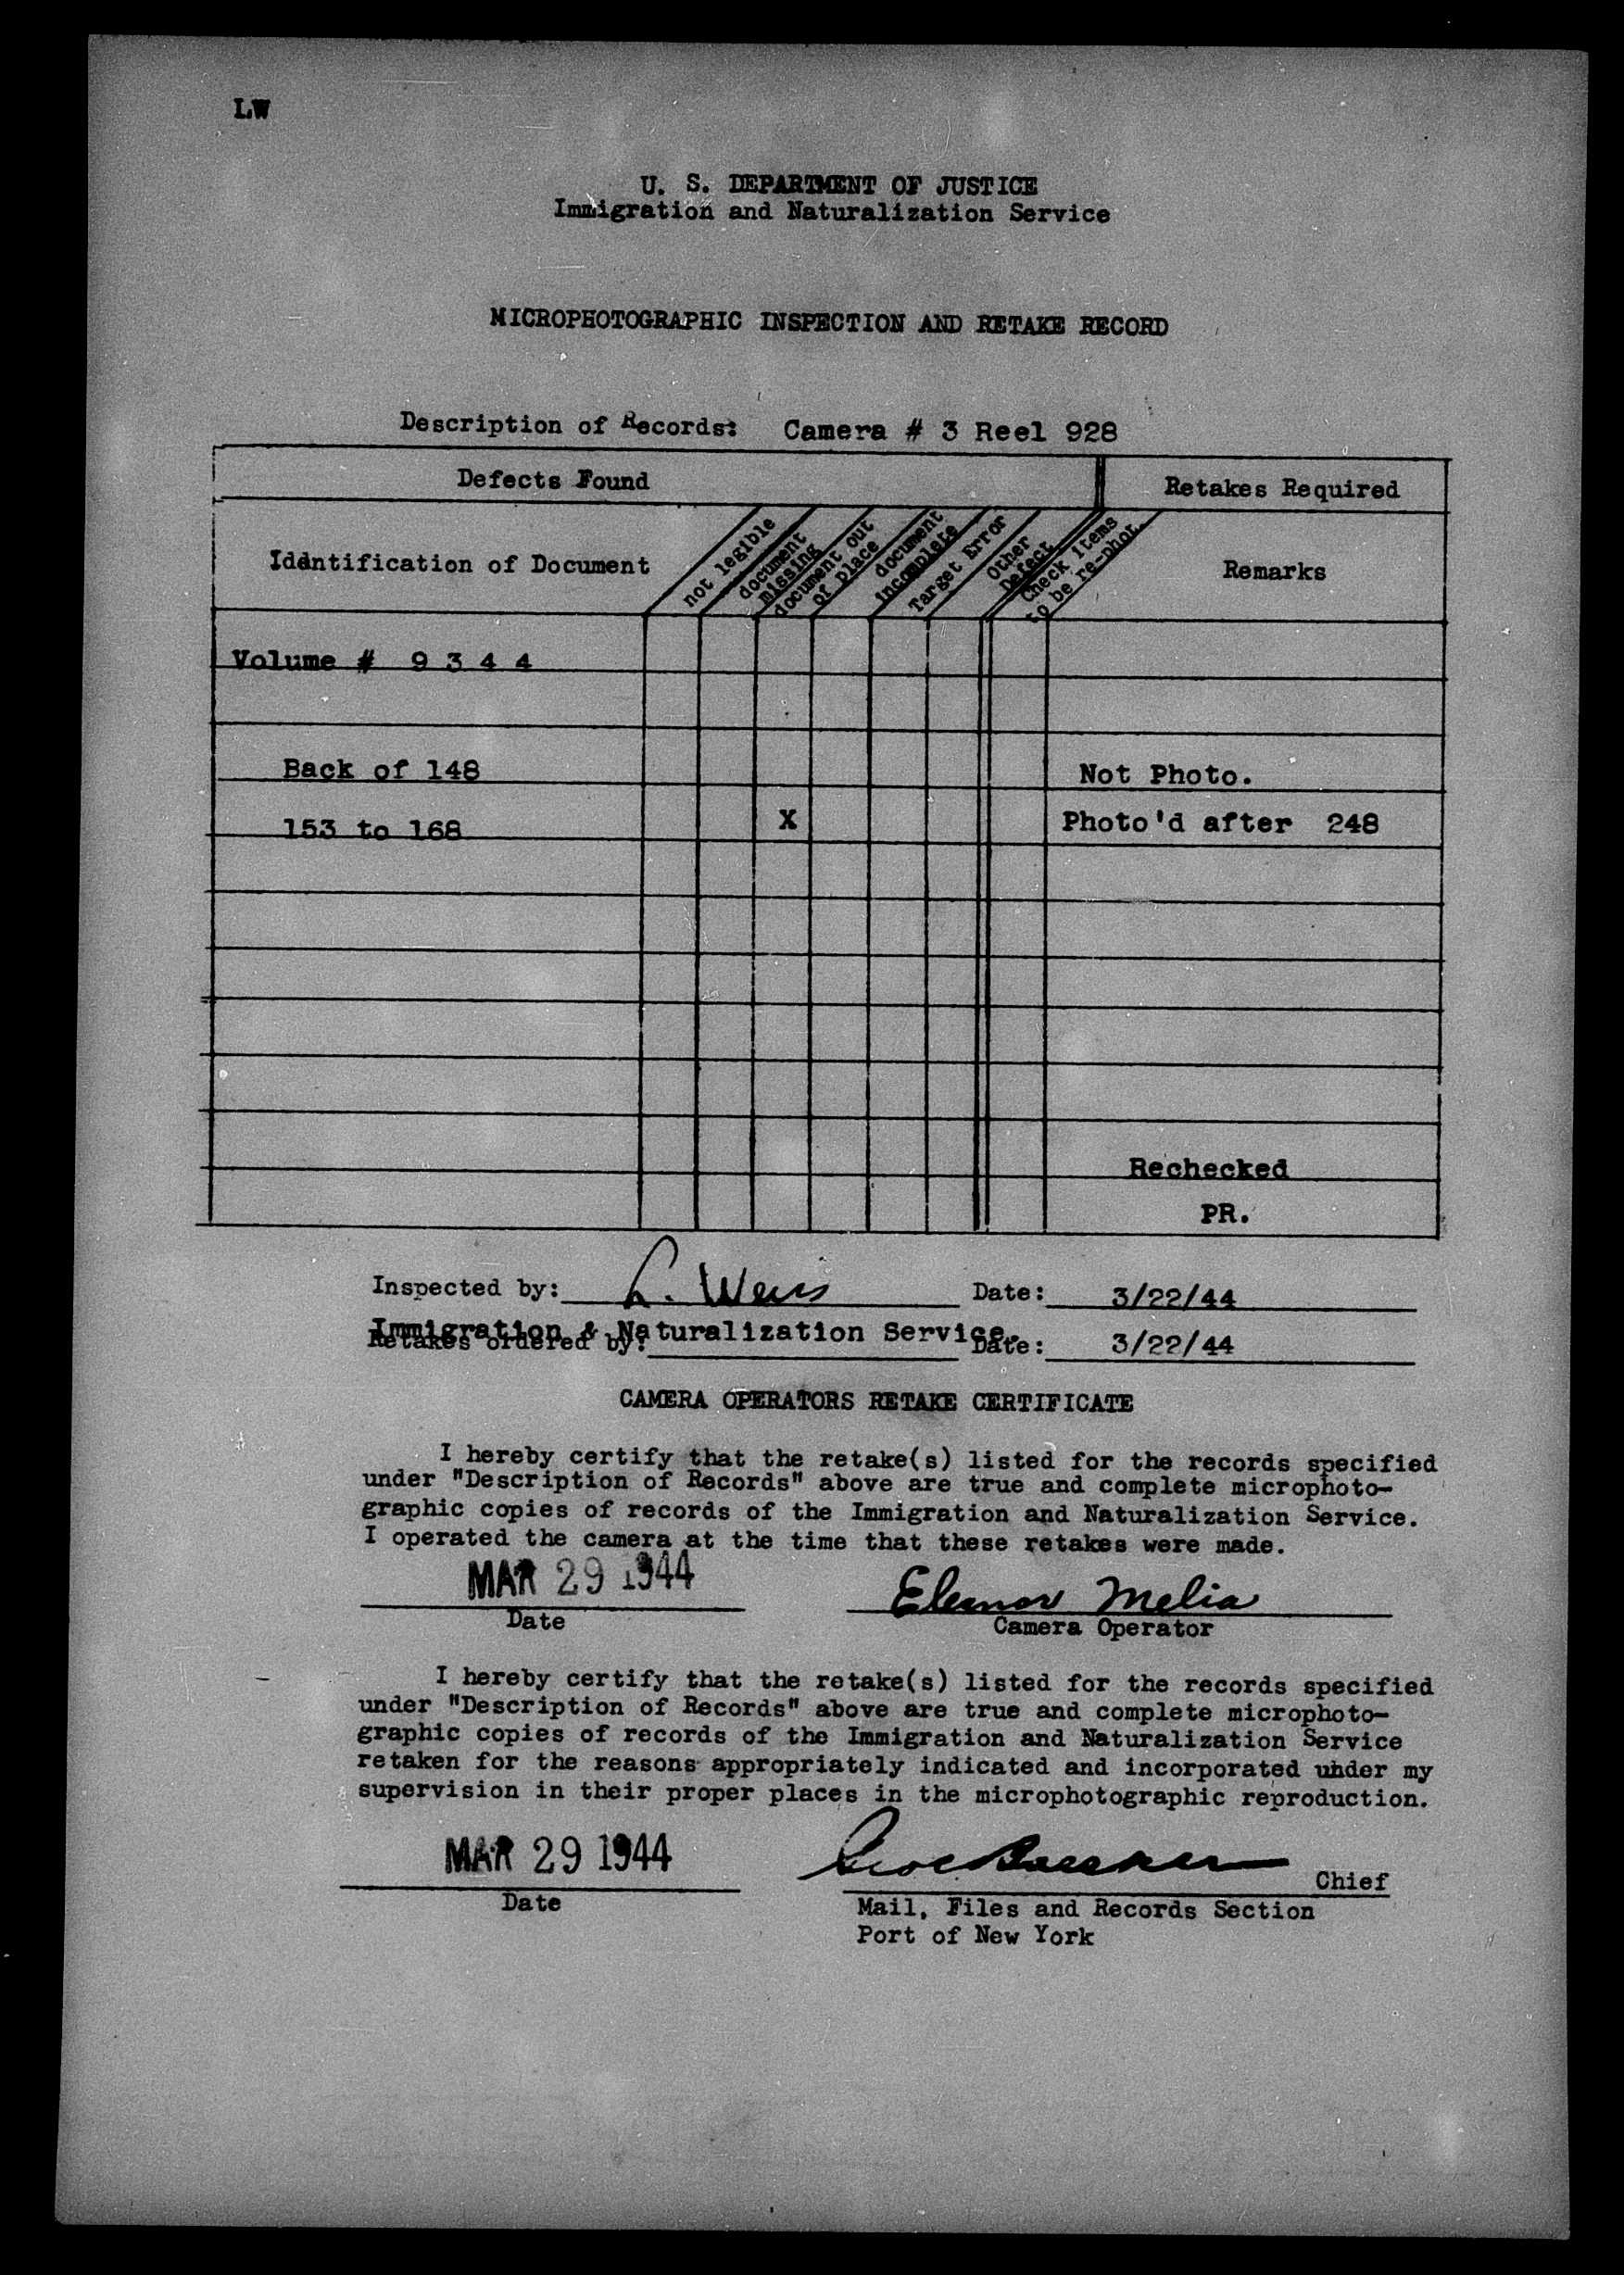 LW
U. S. DEPARTMENT OF JUSTICE
Immigration and Naturalization Service
MICROPHOTOGRAPHIC INSPECTION AND RETAKE RECORD
Description of Records: Camera # 3 Reel 928
Defects Found
Retakes Required
Identification of Document
not legible
document
missing
document out
of place
document
incomplete
Target Error
Other
Defect
Check items
to be re-phot.
Remarks
Volume # 9 3 4 4
Back of 148 Not Photo.
153 to 168 X Photo'd after 248
Rechecked
PR.
Inspected by: L. Weiss Date: 3/22/44
Immigration & Naturalization Service.
Retakes ordered by: Date: 3/22/44
CAMERA OPERATORS RETAKE CERTIFICATE
I hereby certify that the retake(s) listed for the records specified
under "Description of Records" above are true and complete microphoto-
graphic copies of records of the Immigration and Naturalization Service.
I operated the camera at the time that these retakes were made.
MAR 29 1944 Eleanor Melia
Date Camera Operator
I hereby certify that the retake(s) listed for the records specified
under "Description of Records" above are true and complete microphoto-
graphic copies of records of the Immigration and Naturalization Service
retaken for the reasons appropriately indicated and incorporated under my
supervision in their proper places in the microphotographic reproduction.
MAR 29 1944 Chief
Date
Mail, Files and Records Section
Port of New York